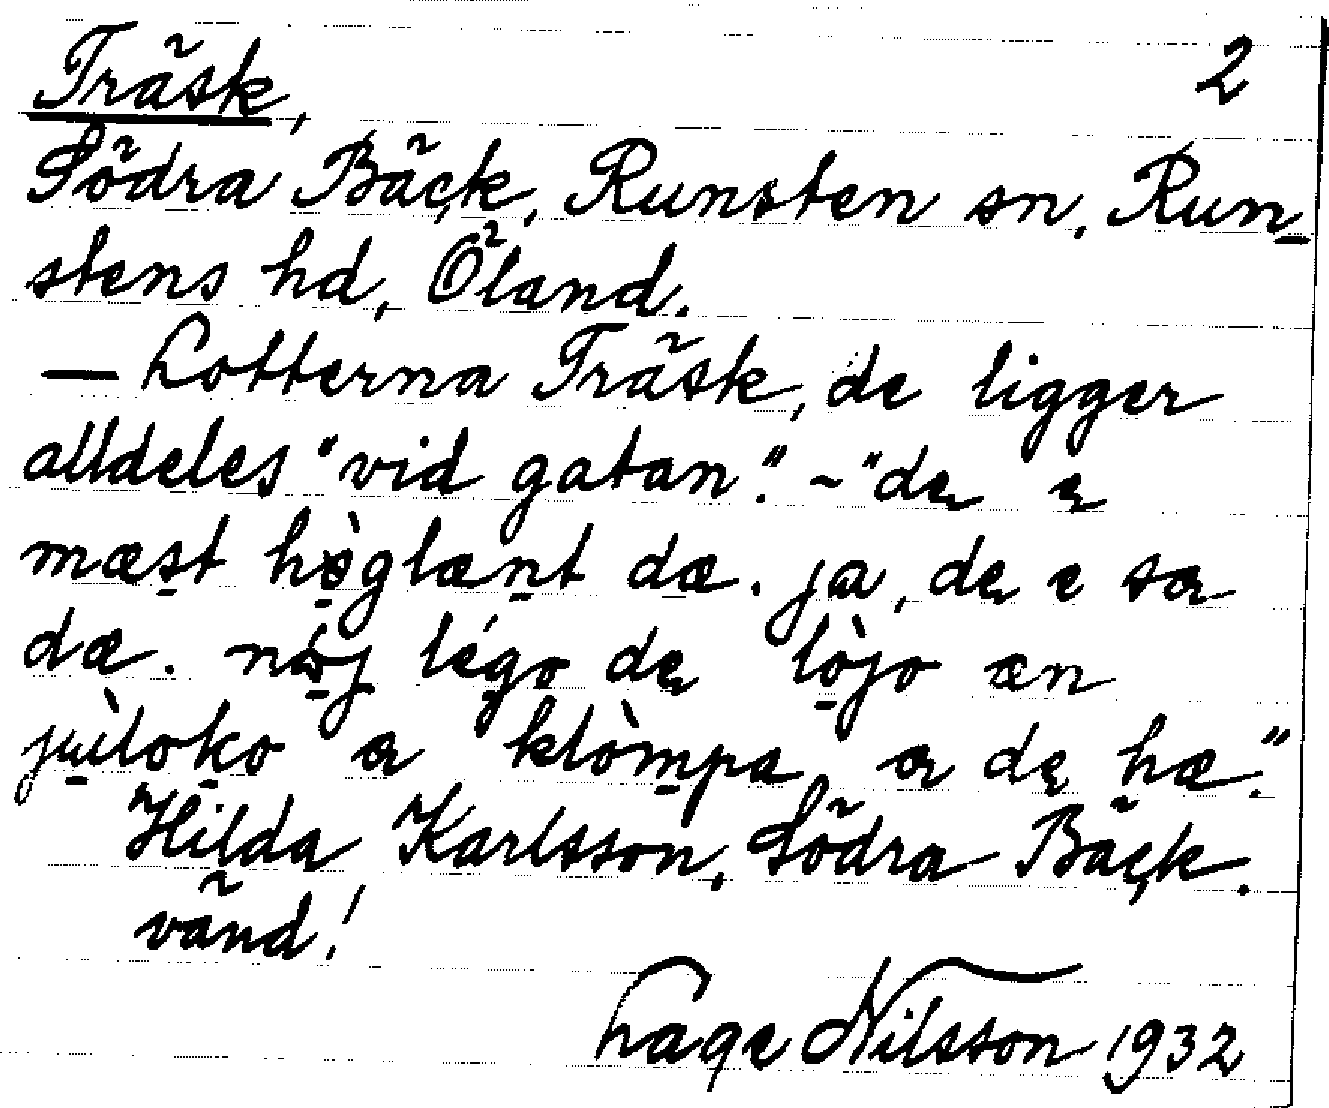 Träsk, 2
Södra Bäck, Runsten sn, Run-
stens hd, Öland.
— Lotterna Träsk, de ligger
alldeles "vid gatan". ~ "de e
mæst hòglænt dæ. ja, de e sa
dæ. nǿj légo de lòjo æn
jùloko a klòmpa, a de hæ."
Hilda Karlsson, Södra Bäck.
vänd!
Lage Nilsson 1932